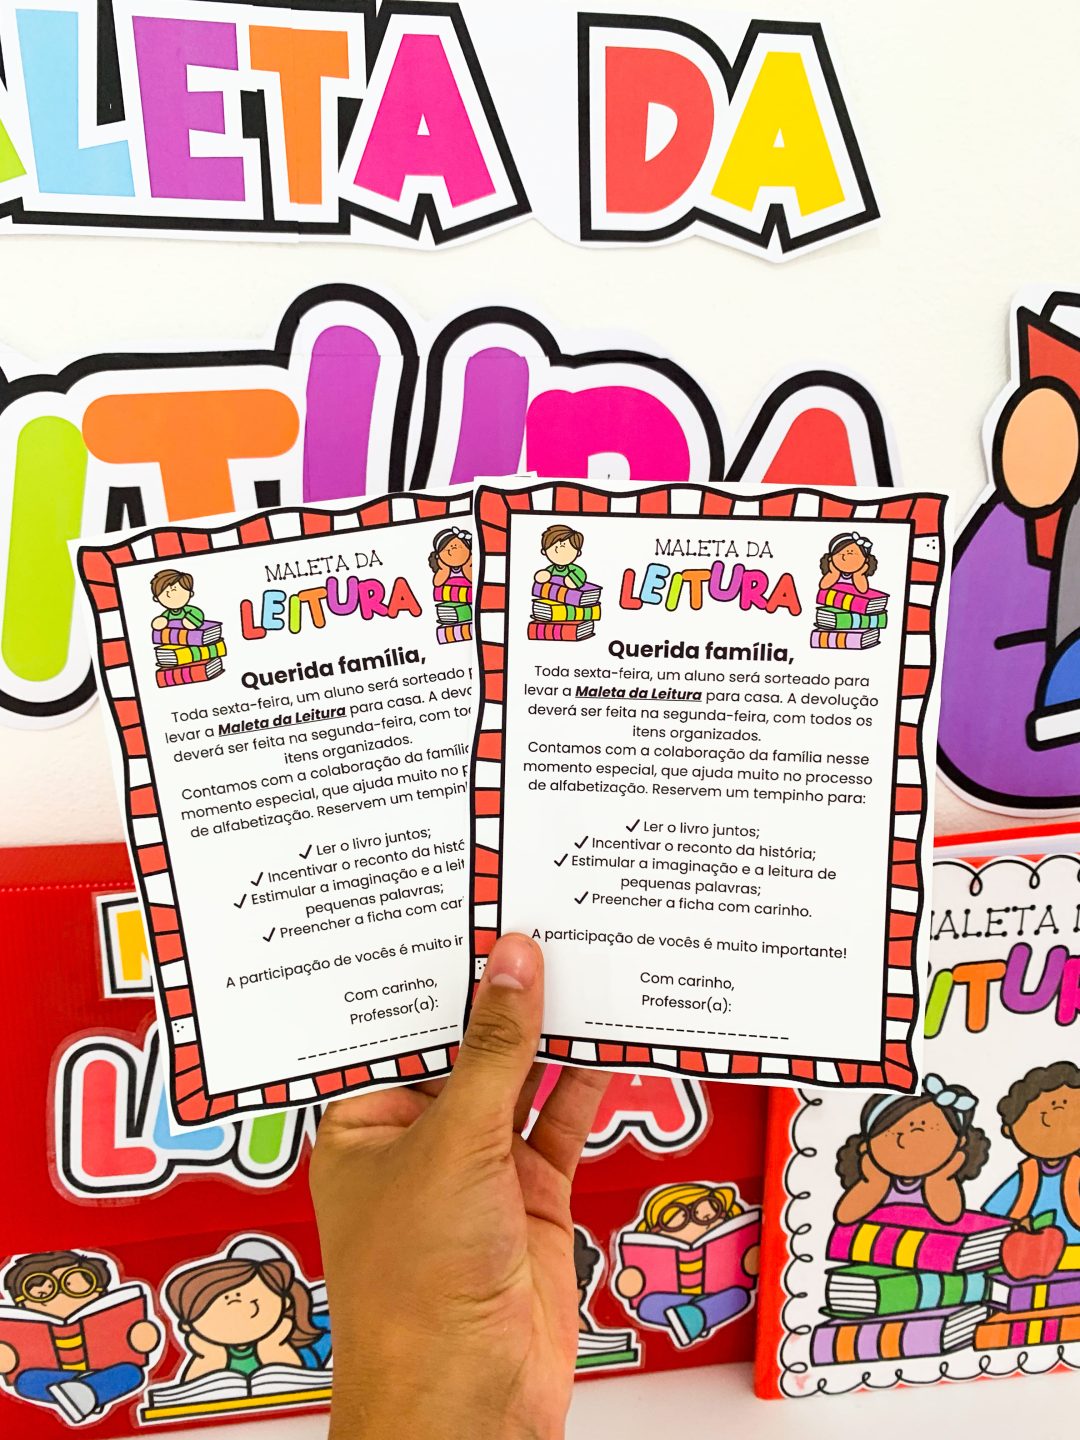 ALETA DA
ITURA
MALETA DA
LEITURA
Querida família,
Toda sexta-feira, um aluno será sorteado
levar a Maleta da Leitura para casa. A
deverá ser feita na segunda-feira, com
itens organizados.
Contamos com a colaboração da
momento especial, que ajuda muito no
de alfabetização. Reservem um
✓ Ler o livro juntos;
✓ Incentivar o reconto da
✓ Estimular a imaginação e a
pequenas palavras;
✓ Preencher a ficha com
A participação de vocês é muito
Com carinho,
Professor(a):
MALETA DA
LEITURA
Querida família,
Toda sexta-feira, um aluno será sorteado para
levar a Maleta da Leitura para casa. A devolução
deverá ser feita na segunda-feira, com todos os
itens organizados.
Contamos com a colaboração da família nesse
momento especial, que ajuda muito no processo
de alfabetização. Reservem um tempinho para:
✓ Ler o livro juntos;
✓ Incentivar o reconto da história;
✓ Estimular a imaginação e a leitura de
pequenas palavras;
✓ Preencher a ficha com carinho.
A participação de vocês é muito importante!
Com carinho,
Professor(a):
MALETA
ITURA